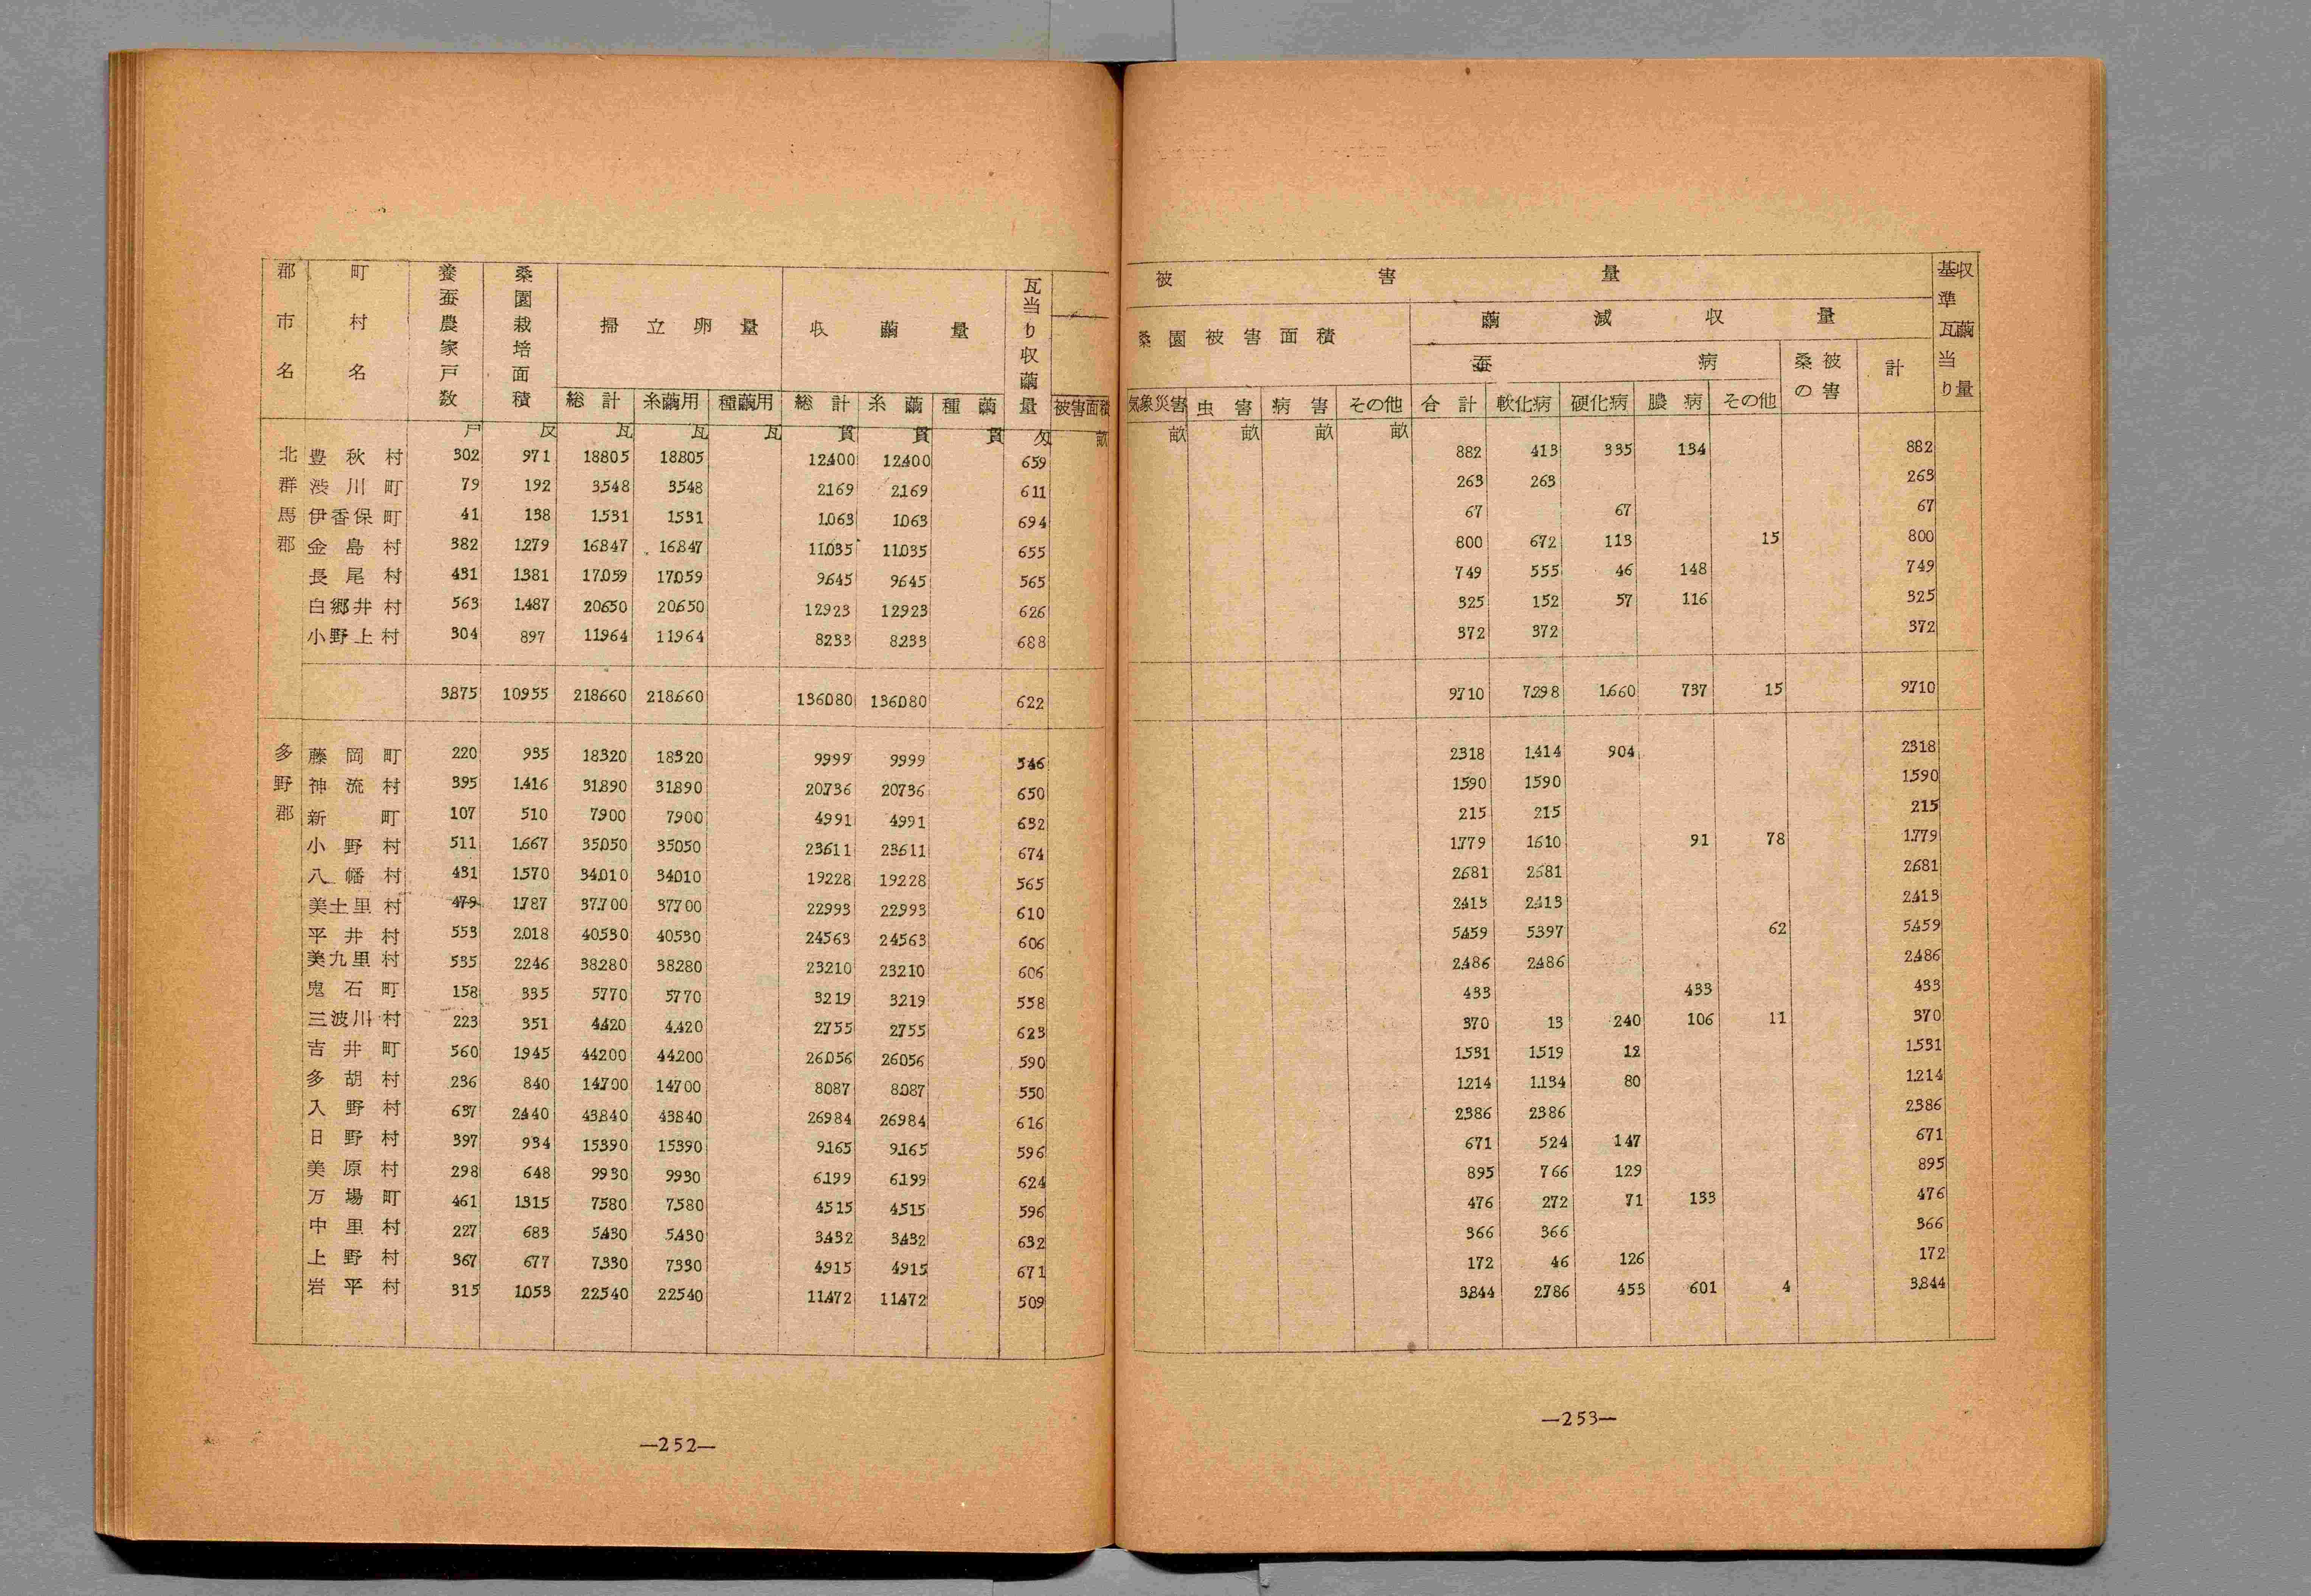 郡市名 町村名 養蚕農家戸数 桑園栽培面積 掃立卵量 収繭量 瓦当り収繭量
総計 糸繭用 種繭用 総計 糸繭 種繭 被害面積
戸 反 瓦 瓦 瓦 貫 貫 貫 匁 畝
北群馬郡
豊秋村 302 971 18805 18805 12400 12400 659
渋川町 79 192 3548 3548 2169 2169 611
伊香保町 41 138 1531 1531 1063 1063 694
金島村 382 1279 16847 16847 11035 11035 655
長尾村 431 1381 17059 17059 9645 9645 565
白郷井村 563 1487 20650 20650 12923 12923 626
小野上村 304 897 11964 11964 8233 8233 688
3875 10955 218660 218660 136080 136080 622
多野郡
藤岡町 220 935 18320 18320 9999 9999 546
神流村 395 1416 31890 31890 20736 20736 650
新町 107 510 7900 7900 4991 4991 632
小野村 511 1667 35050 35050 23611 23611 674
八幡村 431 1570 34010 34010 19228 19228 565
美土里村 479 1787 37700 37700 22993 22993 610
平井村 553 2018 40530 40530 24563 24563 606
美九里村 535 2246 38280 38280 23210 23210 606
鬼石町 158 335 5770 5770 3219 3219 558
三波川村 223 351 4420 4420 2755 2755 623
吉井町 560 1945 44200 44200 26056 26056 590
多胡村 236 840 14700 14700 8087 8087 550
入野村 637 2440 43840 43840 26984 26984 616
日野村 397 934 15390 15390 9165 9165 596
美原村 298 648 9930 9930 6199 6199 624
万場町 461 1315 7580 7580 4515 4515 596
中里村 227 683 5430 5430 3432 3432 632
上野村 367 677 7330 7330 4915 4915 671
岩平村 315 1053 22540 22540 11472 11472 509
—252—
被害量 基準瓦当り収繭量
桑園被害面積 繭減収量
蚕病 桑の被害 計
気象災害 虫害 病害 その他 合計 軟化病 硬化病 膿病 その他
畝 畝 畝 畝
882 413 335 134 882
263 263 263
67 67 67
800 672 113 15 800
749 555 46 148 749
325 152 57 116 325
372 372 372
9710 7298 1660 737 15 9710
2318 1414 904 2318
1590 1590 1590
215 215 215
1779 1610 91 78 1779
2681 2681 2681
2413 2413 2413
5459 5397 62 5459
2486 2486 2486
433 433 433
370 13 240 106 11 370
1531 1519 12 1531
1214 1134 80 1214
2386 2386 2386
671 524 147 671
895 766 129 895
476 272 71 133 476
366 366 366
172 46 126 172
3844 2786 453 601 4 3844
—253—